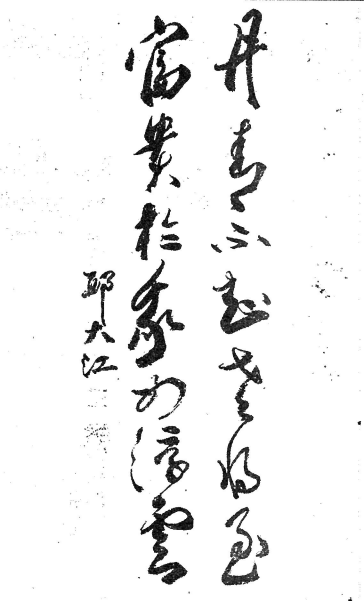 丹青不知老将至
富貴於我如浮雲
邱大江